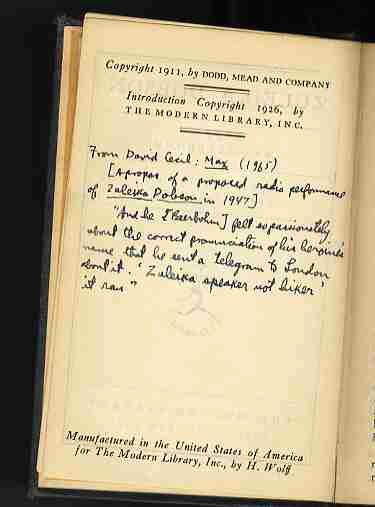 Copyright 1911, by DODD, MEAD AND COMPANY
Introduction Copyright 1926, by
THE MODERN LIBRARY, INC.
From David Cecil: Max (1965)
[Apropos of a proposed radio performance
of Zuleika Dobson in 1947]
"And he [Beerbohm] felt so passionately
about the correct pronunciation of his heroine's
name that he sent a telegram to London
about it. 'Zuleika speaker not hiker'
it ran"
Manufactured in the United States of America
for The Modern Library, Inc., by H. Wolff